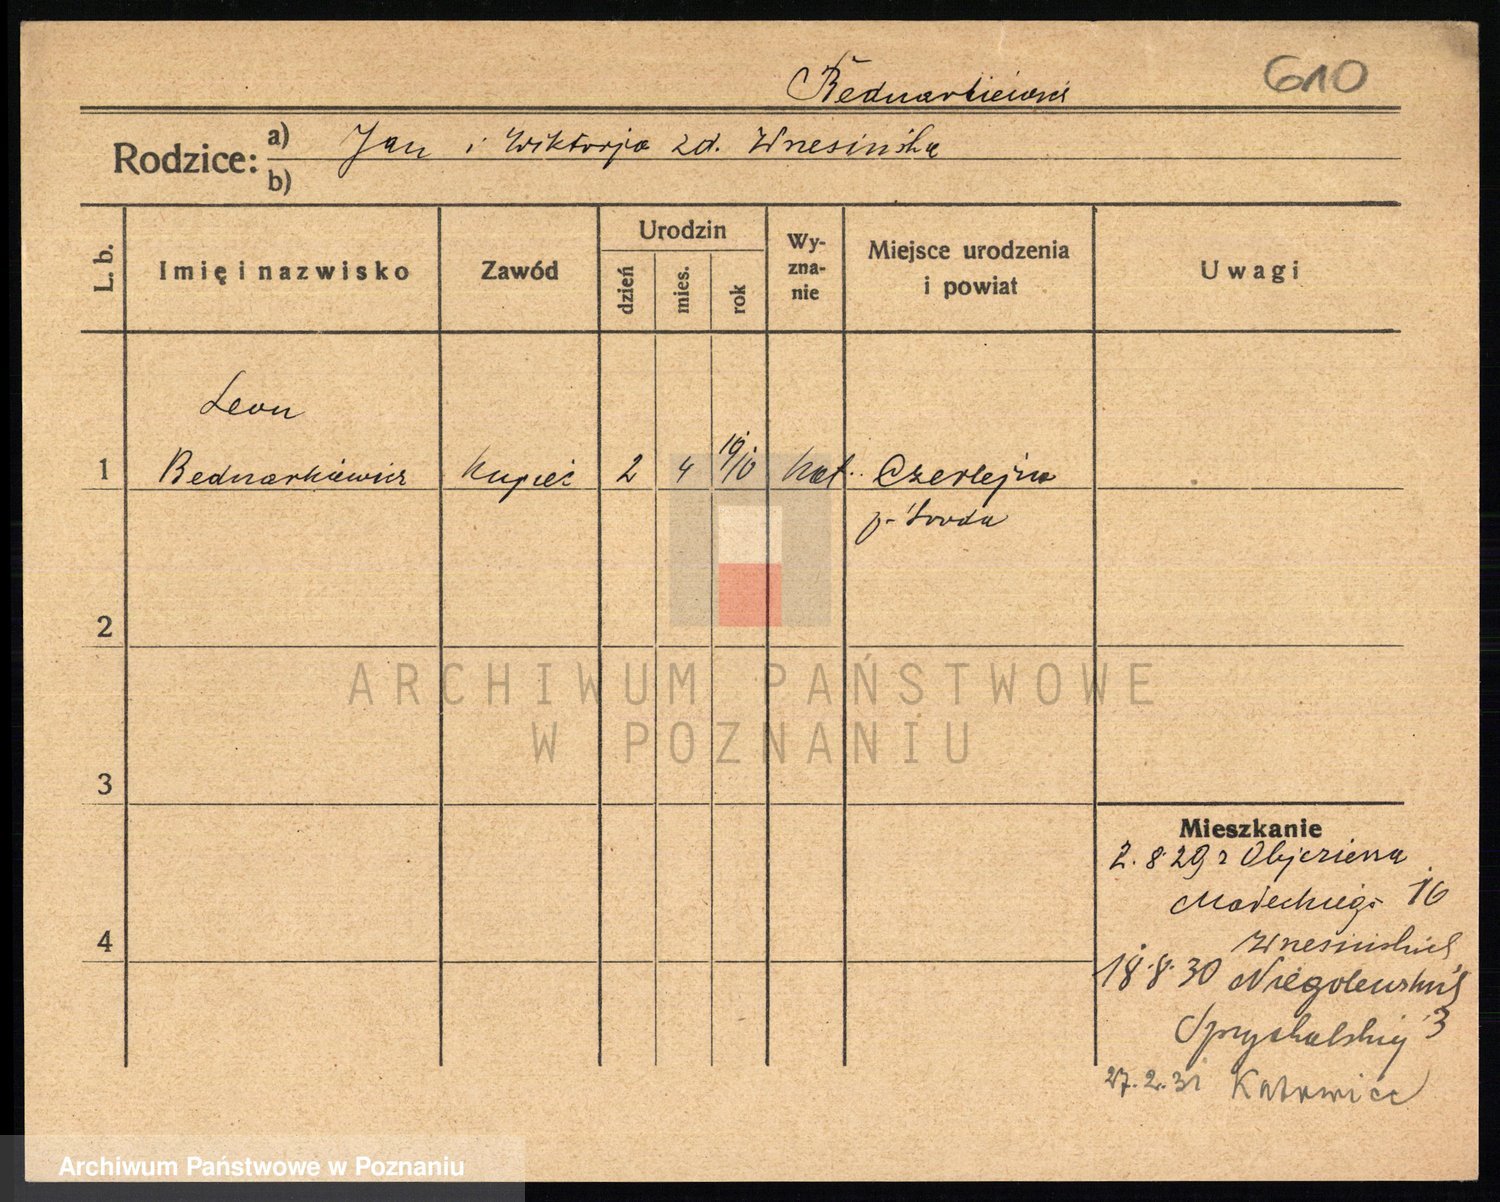 610
Bednarkiewicz
Rodzice:
a) Jan i Wiktorja zd. Wnesińska
b)
L. b.
Imię i nazwisko
Zawód
Urodzin
dzień
mies.
rok
Wyzna-
nie
Miejsce urodzenia
i powiat
Uwagi
Leon
1 Bednarkiewicz kupiec 2 4 1910 kat. Czerlejno
p. Środa
2
3
4
ARCHIWUM PAŃSTWOWE
W POZNANIU
Mieszkanie
2.8.29 z Objezierza
Małeckiego 16
18.8.30 Niegolewskich
3
27.2.31 Katowice
Archiwum Państwowe w Poznaniu